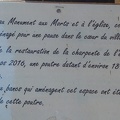 au Monument aux Morts et à l'église, ce
énagé pour une pause dans le cœur du villa
la restauration de la charpente de l'é
2016, une poutre datant d'environ 18
bancs qui aménagent cet espace ont ét
cette poutre.